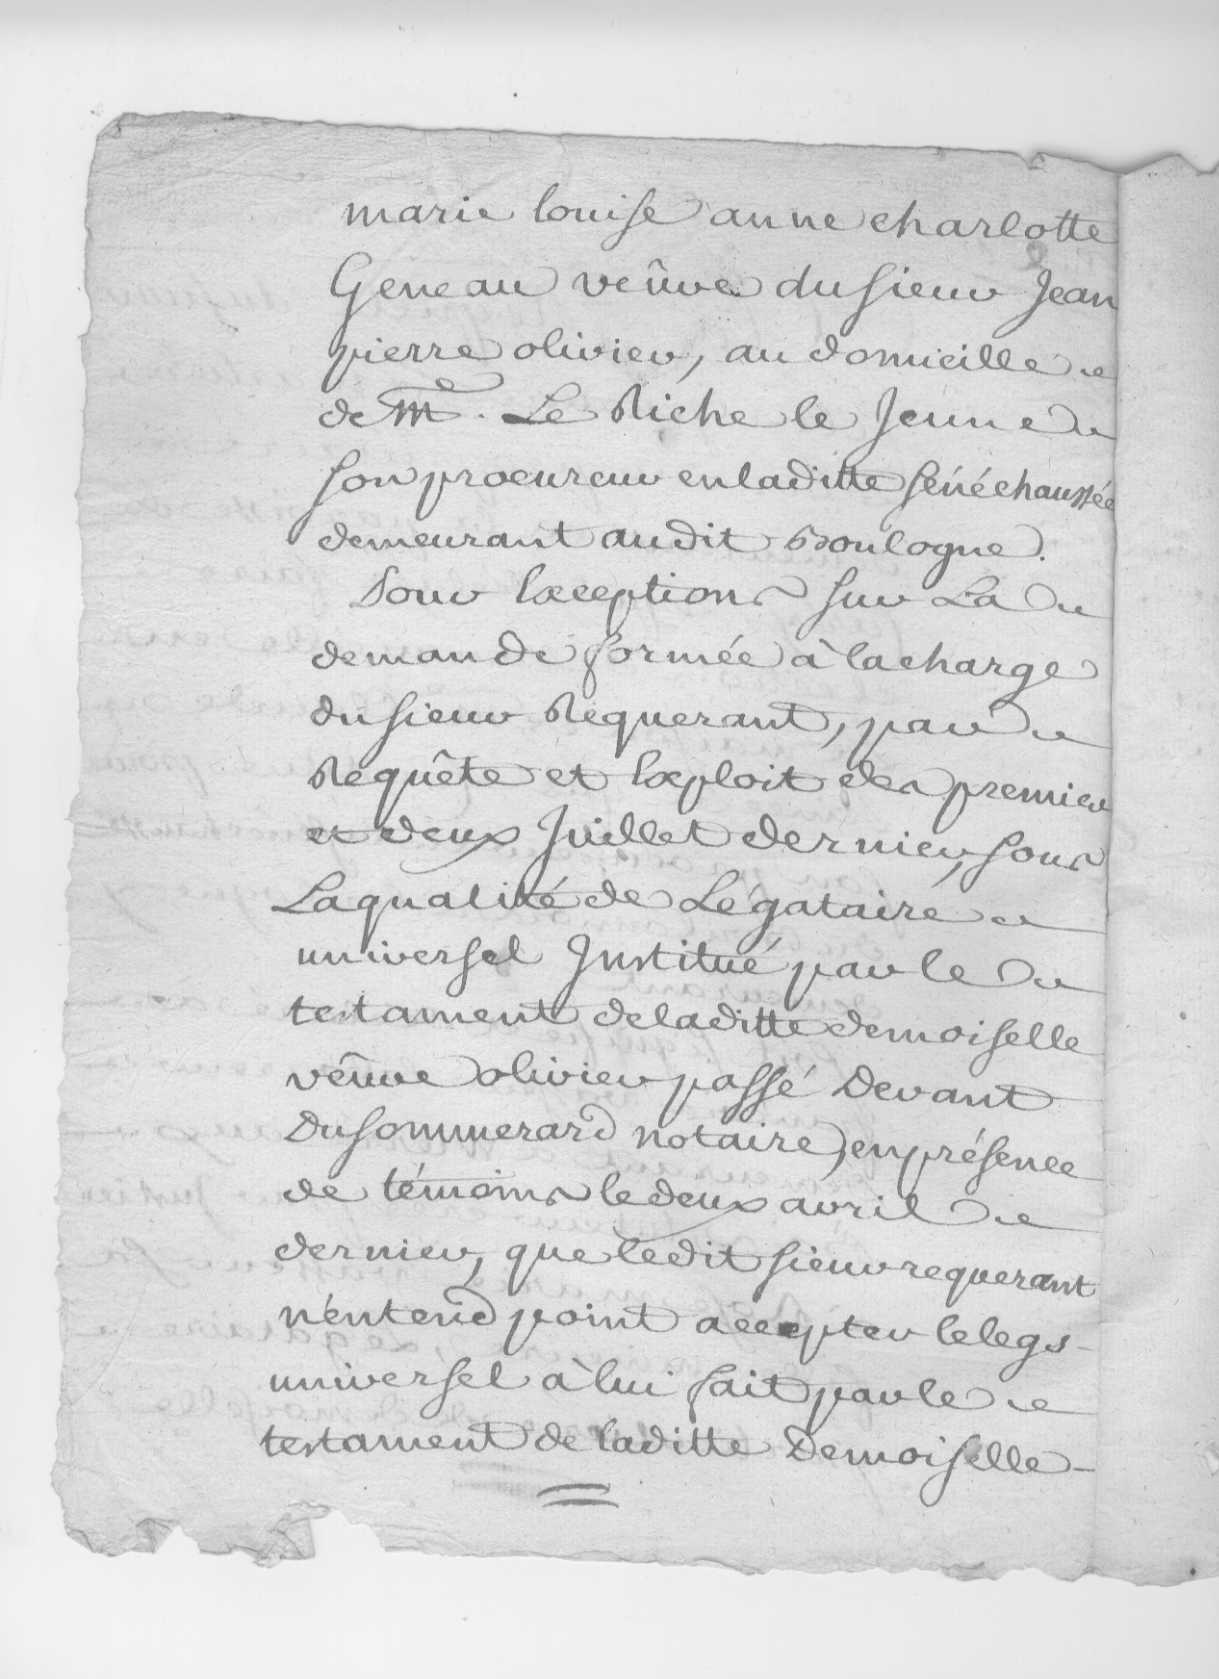 marie louise anne charlotte
Geneau veûve du sieur Jean
pierre olivier, au domicille
de Me. Le Riche le Jeune
son procureur en laditte sénéchaussée
demeurant audit Boulogne.
Pour Exceptions sur La
demande formée à la charge
du sieur Requerant, par
Requête et Exploit des premier
et deux Juillet dernier, sous
La qualité de Légataire
universel Institué par le
testament de laditte demoiselle
veûve olivier passé Devant
Dusommerard notaire, en présence
de témoins le deux avril
dernier, que ledit sieur requerant
n'entend point accepter le legs
universel à lui fait par le
testament de laditte Demoiselle